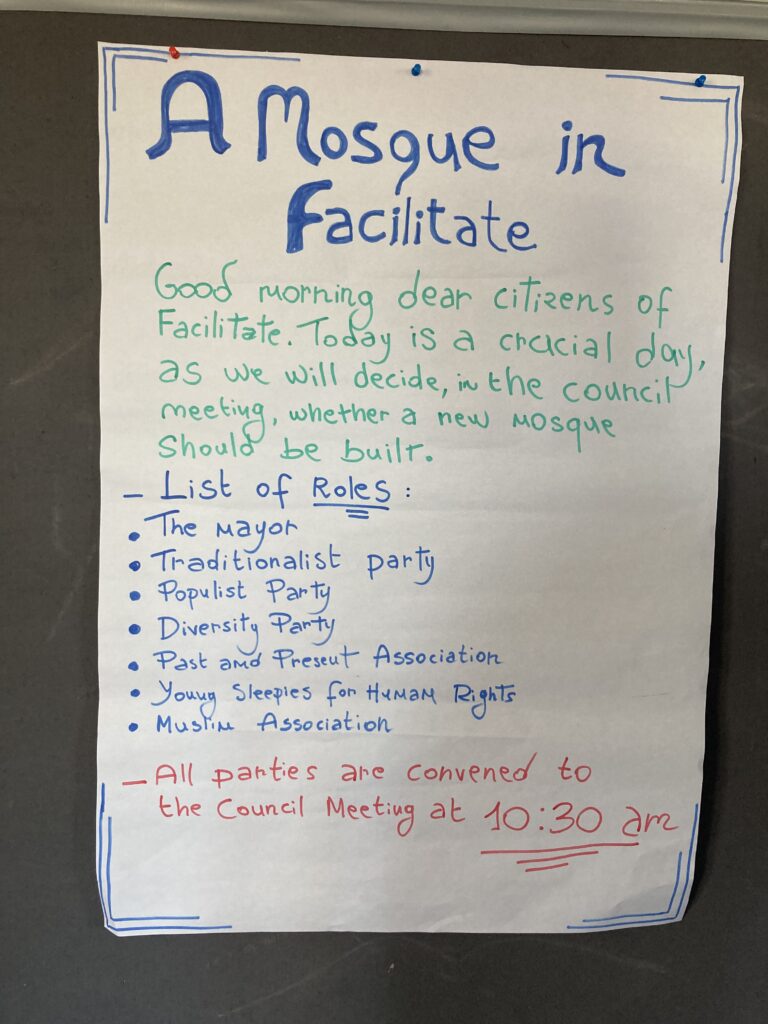 A Mosque in
Facilitate
Good morning dear citizens of
Facilitate. Today is a crucial day,
as we will decide, in the council
meeting, whether a new mosque
should be built.
- List of Roles :
• The mayor
• Traditionalist party
• Populist Party
• Diversity Party
• Past and Present Association
• Young Sleepies for Human Rights
• Muslim Association
- All parties are convened to
the Council Meeting at 10:30 am